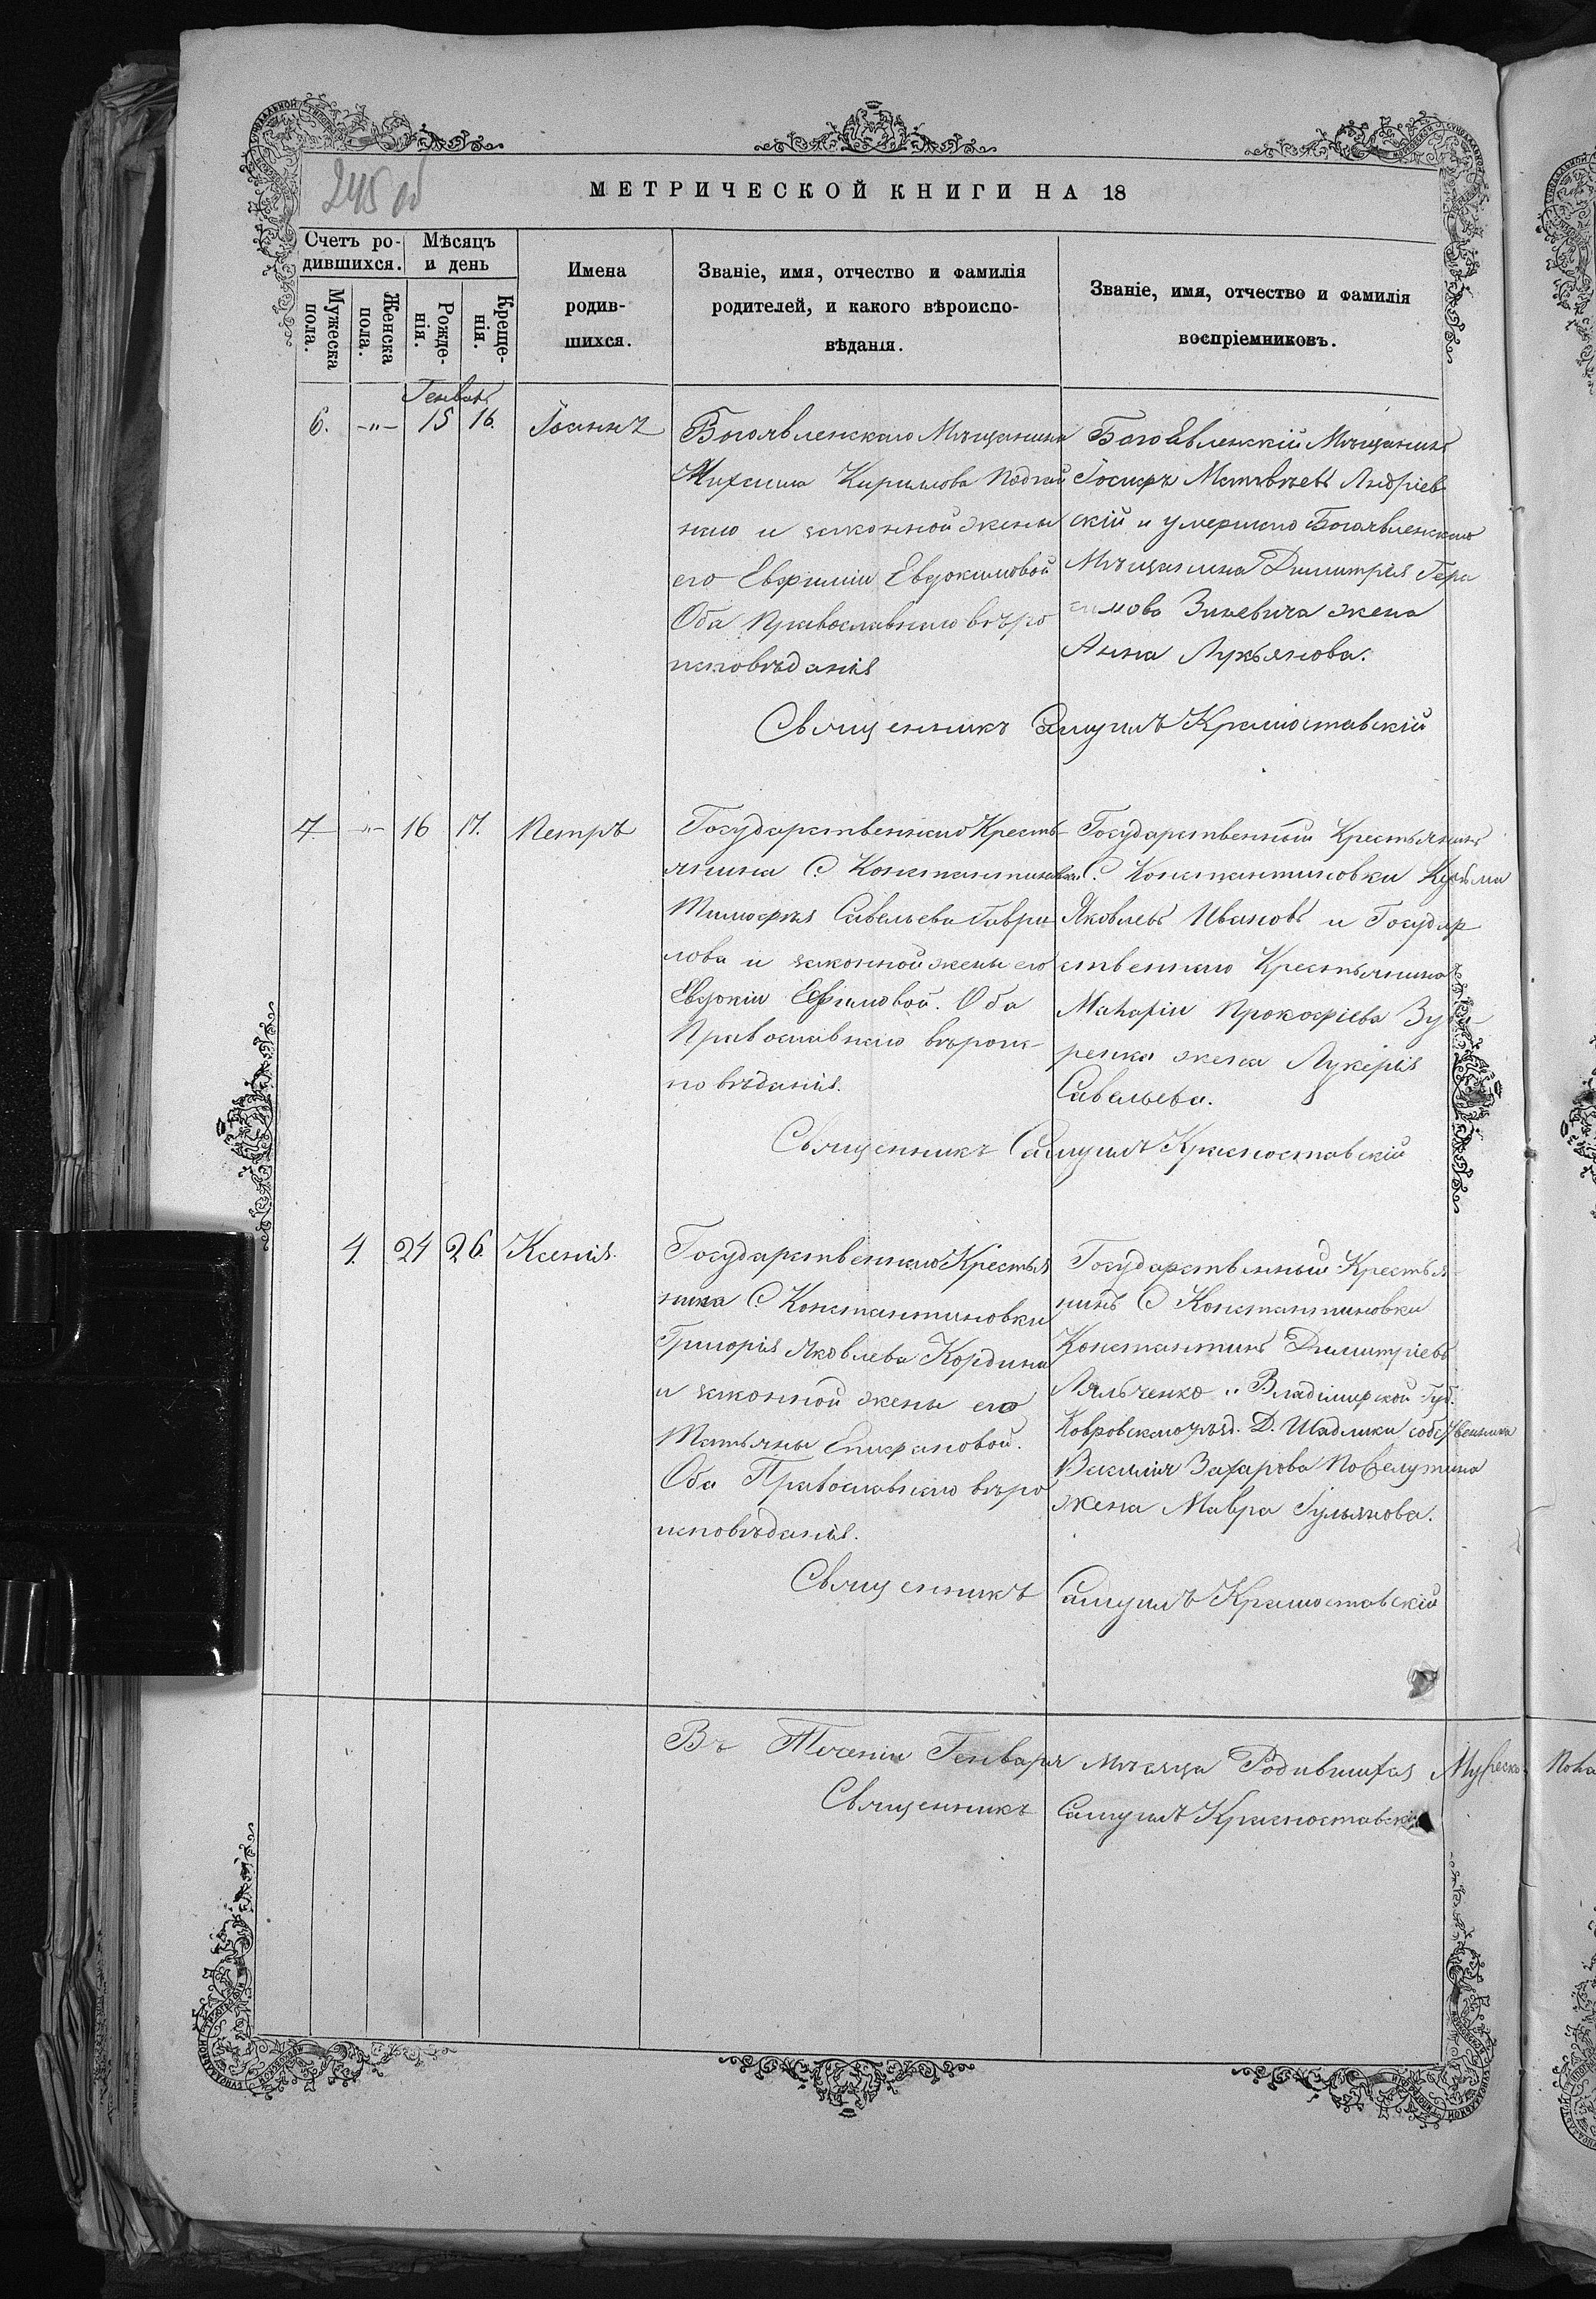 245 об
МЕТРИЧЕСКОЙ КНИГИ НА 18
Счетъ ро-
дившихся.
Мѣсяцъ
и день
Мужеска
пола.
Женска
пола.
Рожде-
нія.
Креще-
нія.
Имена
родив-
шихся.
Званіе, имя, отчество и фамилія
родителей, и какого вѣроиспо-
вѣданія.
Званіе, имя, отчество и фамилія
воспріемниковъ.
Генварь
6. -"- 15 16. Іоаннъ
Богоявленскаго Мѣщанина
Михаила Кирилова Подгай
наго и законной жены
его Евфиміи Евдокимовой
Оба Православнаго вѣро
исповѣданія
Богоявленскій Мѣщанинъ
Іосифъ Матвѣевъ Андріев
скій и умершаго Богоявленскаго
Мѣщанина Димитрія Гера
симова Зиневича жена
Анна Лукьянова.
Священникъ Самуилъ Красноставскій
7 -"- 16 17. Петръ
Государственнаго Кресть-
янина С. Константиновки
Тимофея Савельева Гаври
лова и законной жены его
Евдокіи Ефимовой. Оба
Православнаго вѣроис-
повѣданія.
Государственный Крестьянинъ
С. Константиновки Кузьма
Яковлевъ Ивановъ и Государ
ственнаго Крестьянина
Макарія Прокофіева
жена Лукерія
Савельева.
Священникъ Самуилъ Красноставскій
4. 24 26. Ксенія.
Государственнаго Крестья
нина С Константиновки
Григорія Яковлева Кордина
и законной жены его
Татьяны Епифановой.
Оба Православнаго вѣро
исповѣданія.
Государственный Крестья
нинъ С Константиновки
Константинъ Димитріевъ
Ляльченко и Владимирской Губ.
Ковровскаго уѣзд. Д. собственника
Василія Захарова
жена Мавра Гульянова.
Священникъ Самуилъ Красноставскій
Въ Теченіи Генваря мѣсяца Родившихся Мужеска Пола
Священникъ Самуилъ Красноставскій